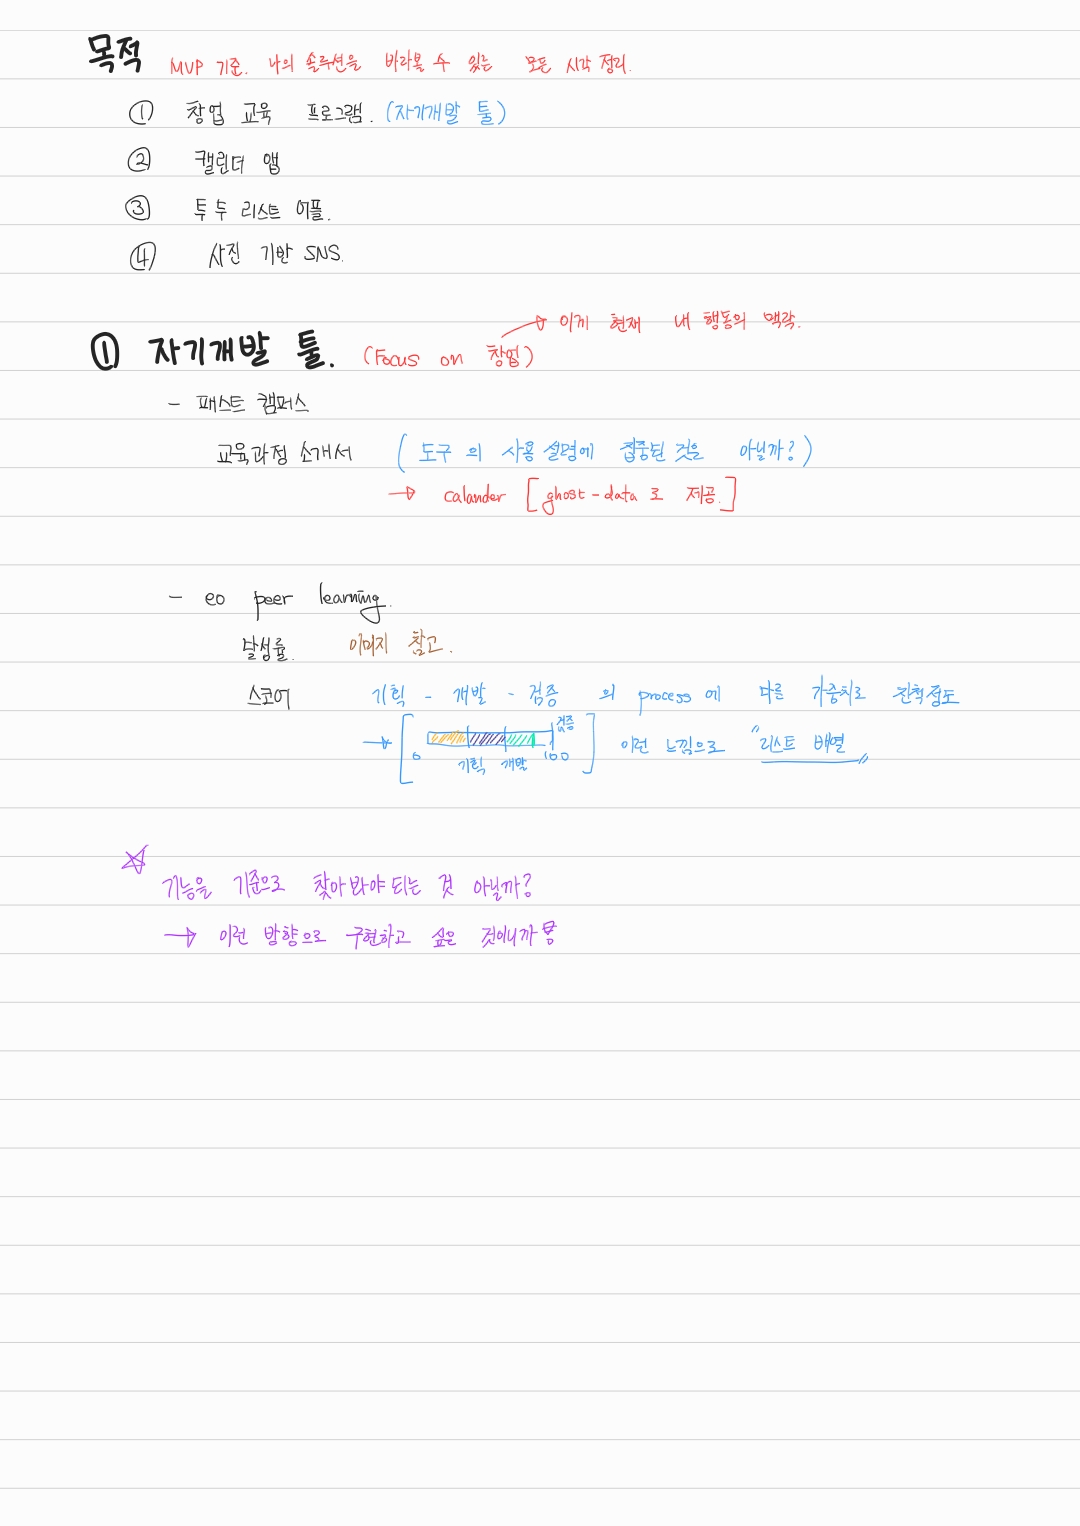 목적 MVP 기준. 나의 솔루션을 바라볼 수 있는 모든 시각 정리.
① 창업 교육 프로그램. (자기개발 툴)
② 캘린더 앱
③ 투두 리스트 어플.
④ 사진 기반 SNS.
→ 이게 현재 내 행동의 맥락.
① 자기개발 툴. (Focus on 창업)
- 패스트 캠퍼스
교육과정 소개서 ( 도구의 사용 설명에 집중된 것은 아닐까? )
→ calander [ghost-data로 제공.]
- eo peer learning.
달성률. 이미지 참고.
스코어 기획 - 개발 - 검증 의 process에 다른 가중치로 진척점도
검증
→ [ ] 이런 느낌으로 "리스트 배열"
0 기획 개발 100
☆
기능을 기준으로 찾아봐야 되는 것 아닐까?
→ 이런 방향으로 구현하고 싶은 것이니까